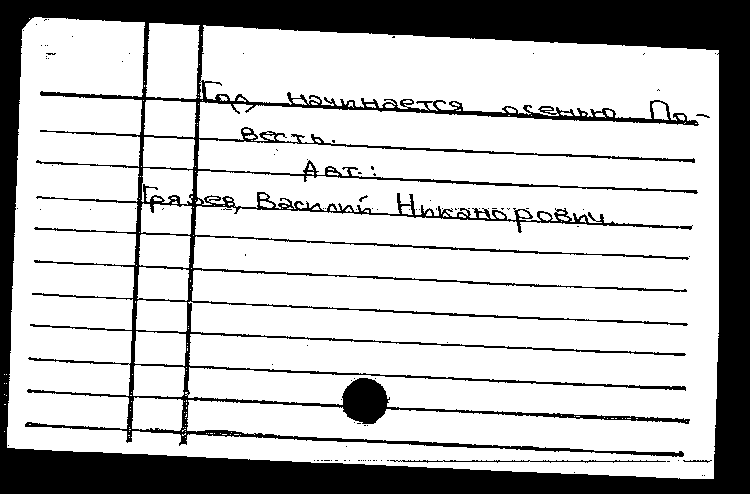 Год начинается осенью По-
весть.
Авт.:
Грязев, Василий Никанорович.